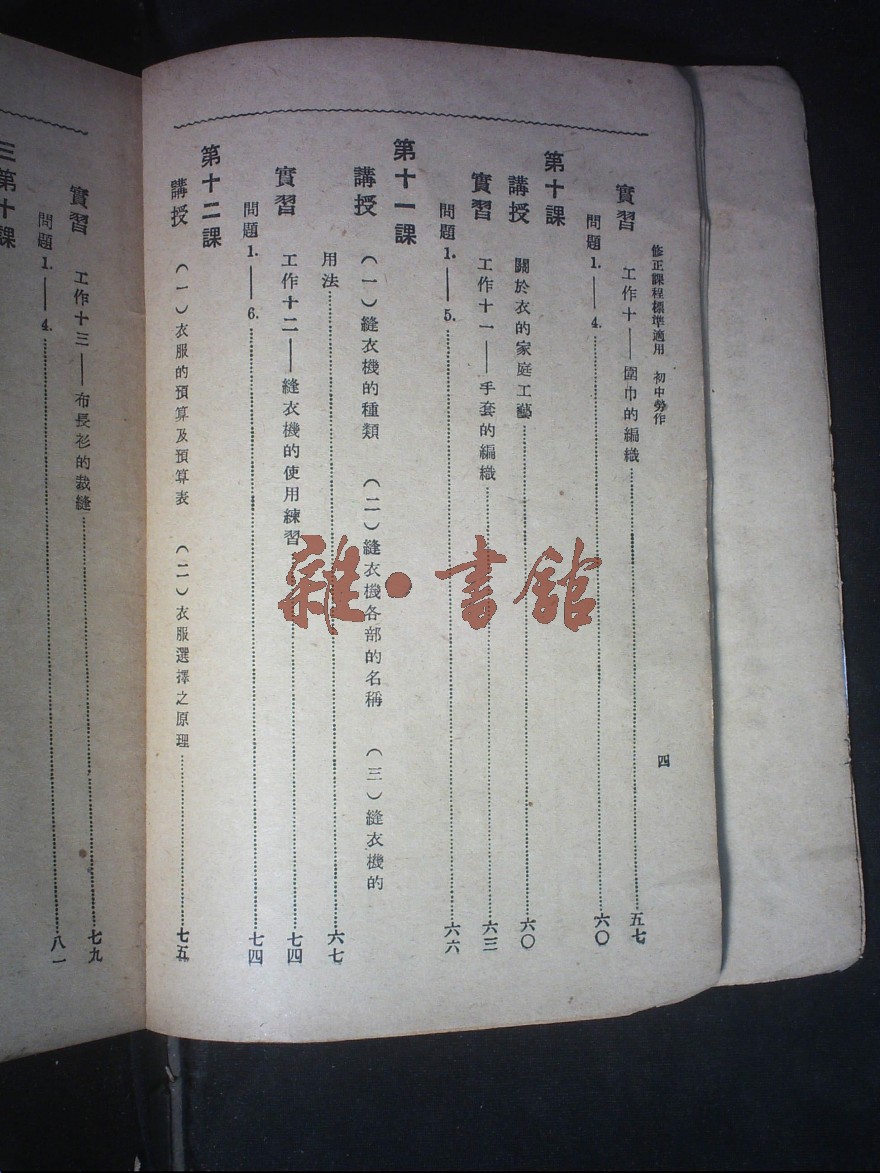 修正課程標準適用　初中勞作
四
實習　工作十——圍巾的編織……五七
問題1.——4.……六〇
第十課
講授　關於衣的家庭工藝……六〇
實習　工作十一——手套的編織……六三
問題1.——5.……六六
第十一課
講授　(一)縫衣機的種類　(二)縫衣機各部的名稱　(三)縫衣機的
用法……六七
實習　工作十二——縫衣機的使用練習……七四
問題1.——6.……七四
第十二課
講授　(一)衣服的預算及預算表　(二)衣服選擇之原理……七五
實習　工作十三——布長衫的裁縫……七九
問題1.——4.……八一
第十三課
雜·書館